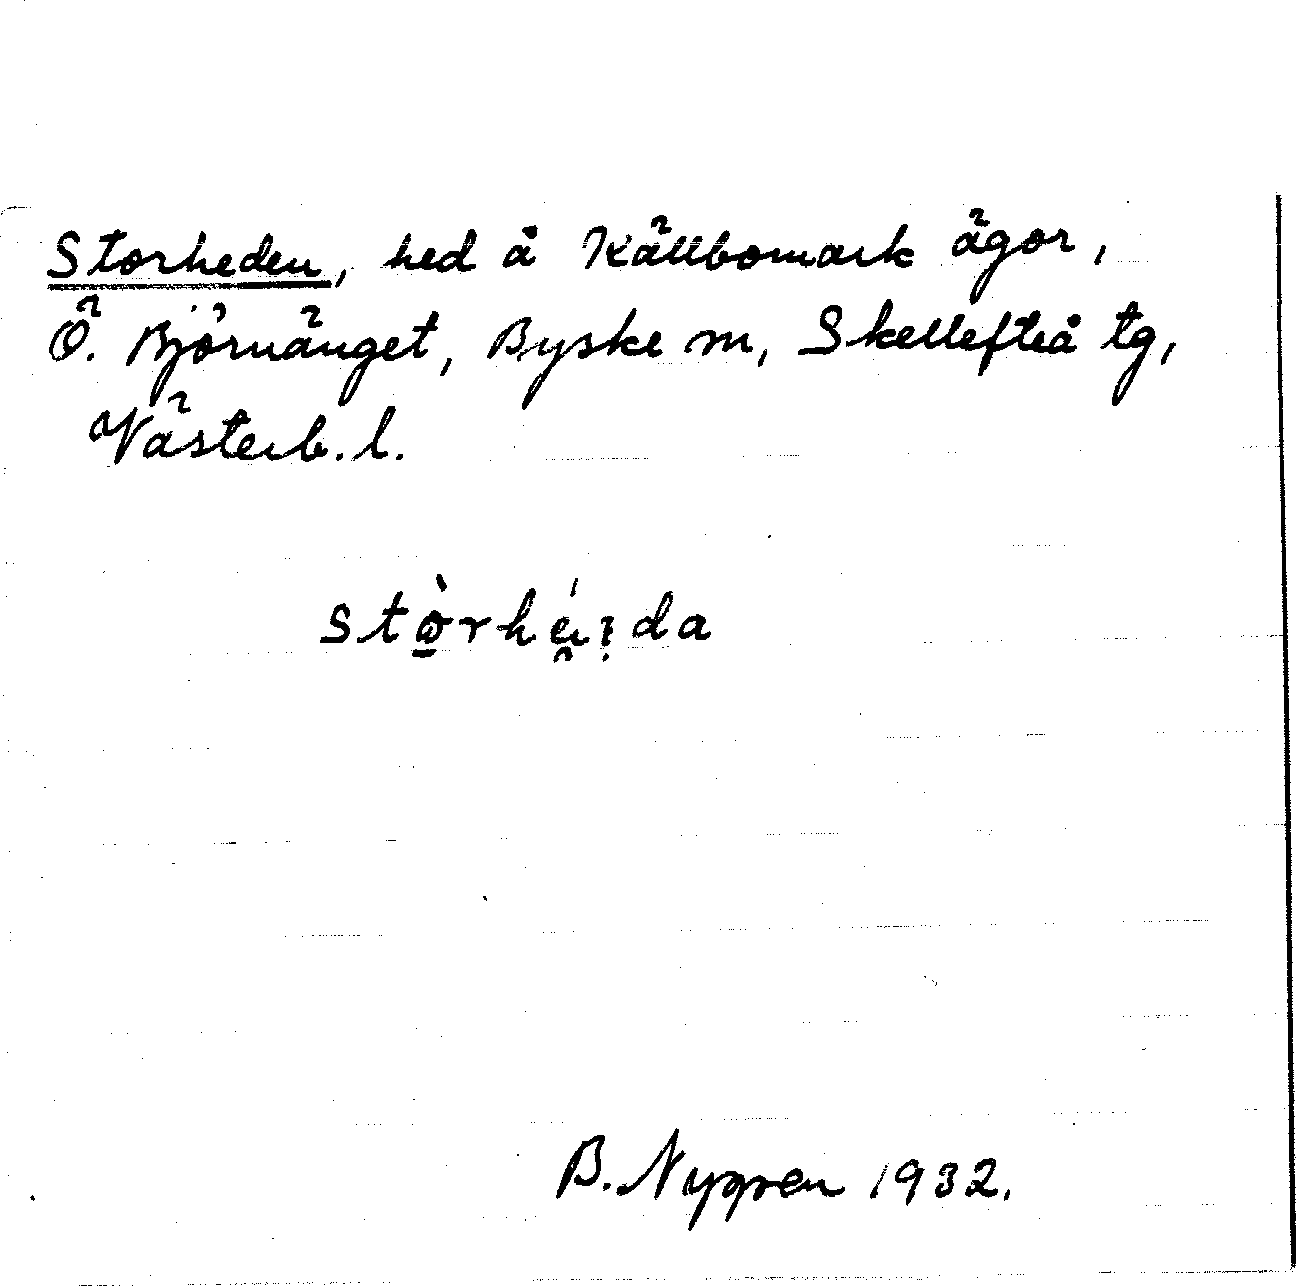 Storheden, hed å Källbomark ägor,
Ö. Björnänget, Byske sn, Skellefteå tg,
Västerb. l.
B. Nygren 1932.